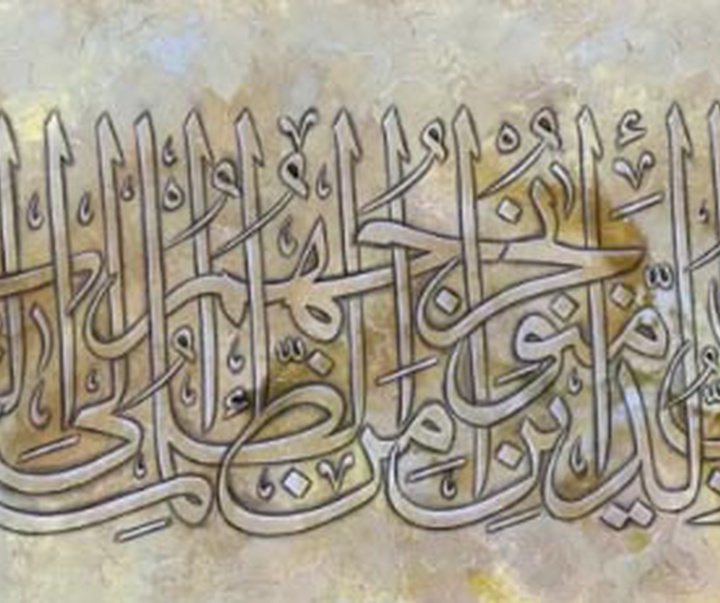 الَّذِينَ آمَنُوا يُخْرِجُهُم مِّنَ الظُّلُمَاتِ إِلَى